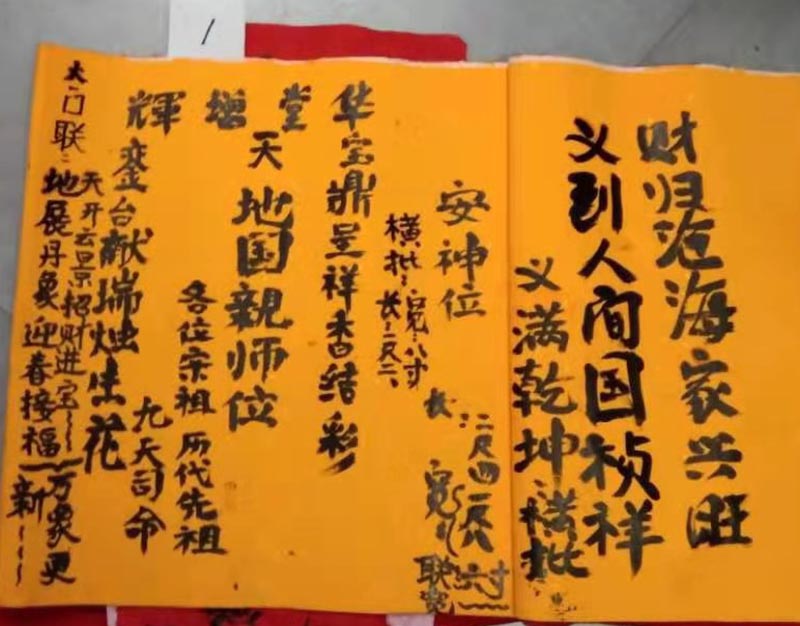 财归沧海家兴旺
义到人间国祯祥
义满乾坤横批
安神位
横批:宽:八寸
长:二尺二
华堂增輝
宝鼎呈祥香结彩
天地国親师位
各位宗祖 历代先祖
九天司命
台献瑞烛生花
大门联:
天开云景招财进宝
地展丹象迎春接福
万象更
新